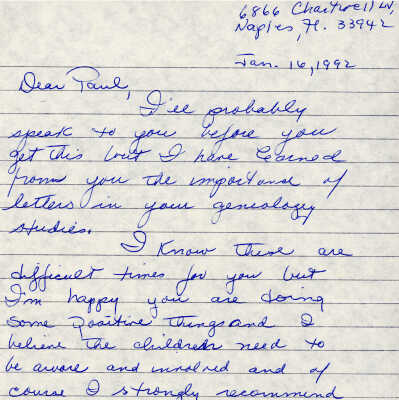 6866 Chartwell LN,
Naples, Fl. 33942
Jan. 16, 1992
Dear Paul,
I'll probably
speak to you before you
get this but I have learned
from you the importance of
letters in your geneology
studies.
I know these are
difficult times for you but
I'm happy you are doing
some positive things and I
believe the children need to
be aware and involved and of
course I strongly recommend